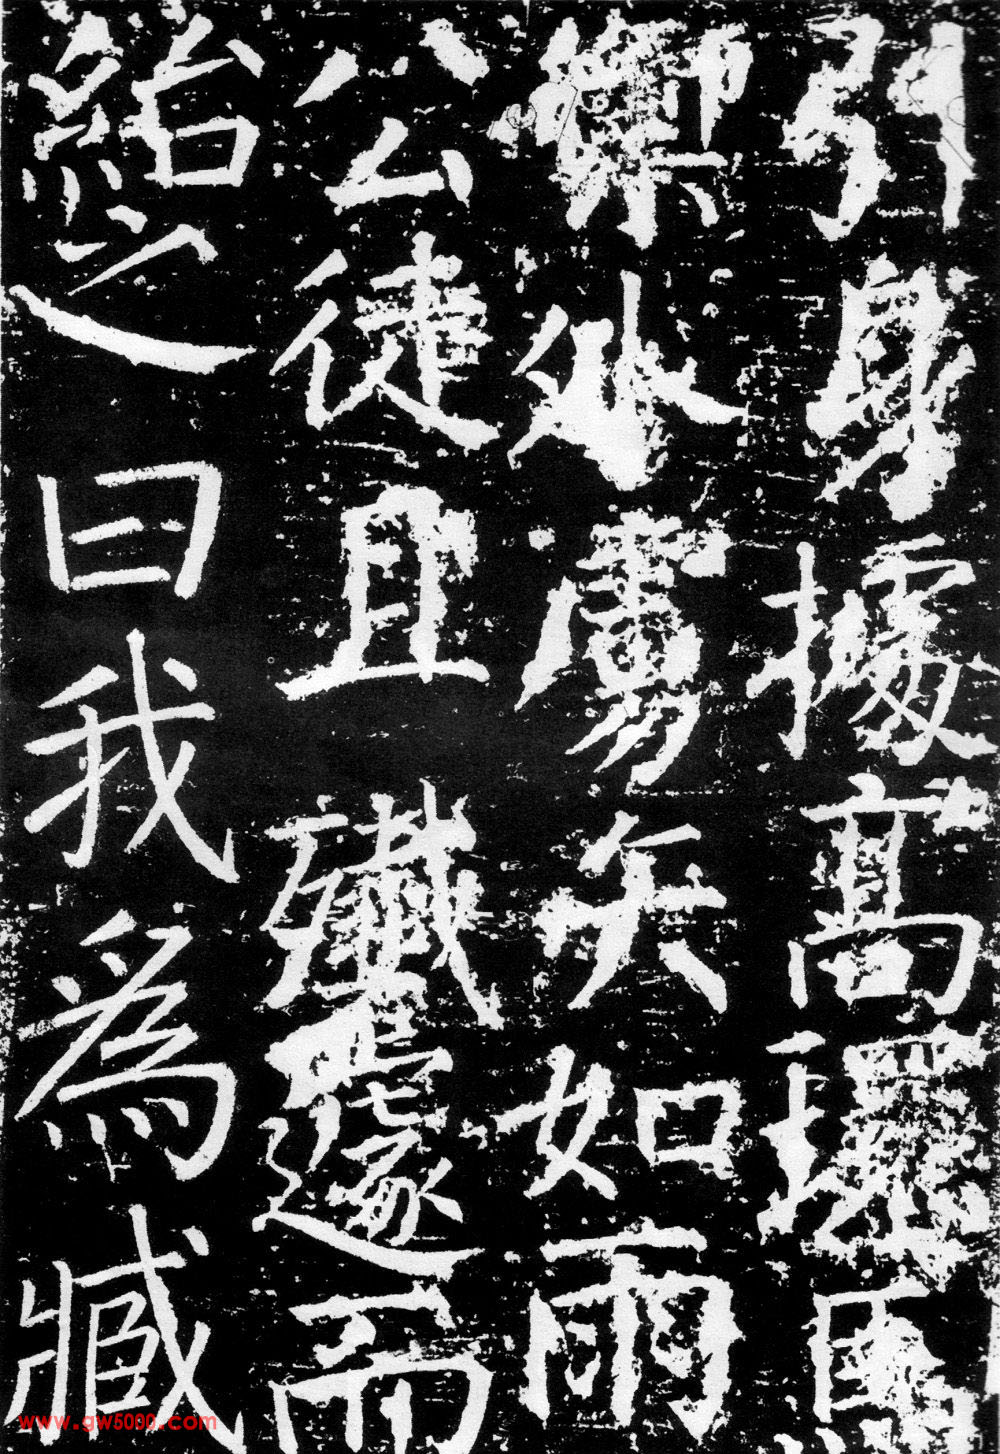 引身據高環馬
禦外虜矢如雨
公徒且殲遽而
紿之曰我為臧
www.gw5000.com